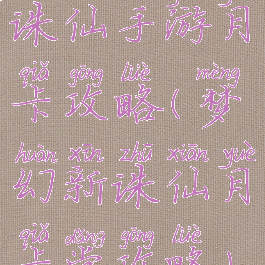 诛仙手游月
qiǎ gōng lüè mèng
卡攻略(梦
huàn xīn zhū xiān yuè
幻新诛仙月
qiǎ gōng lüè
卡攻略)